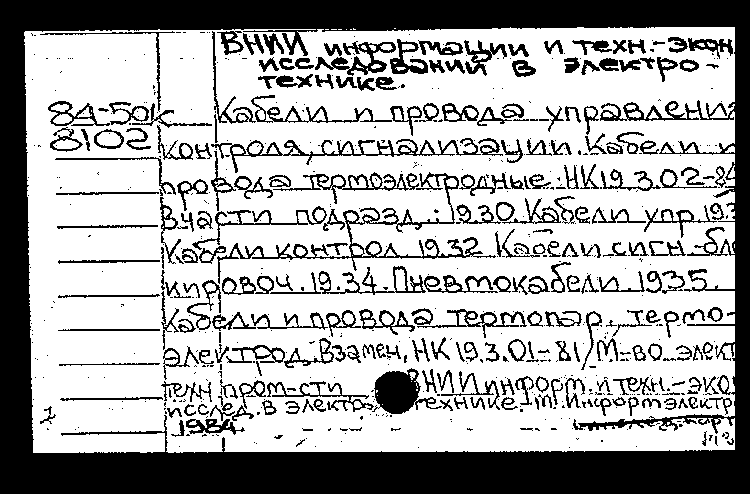 ВНИИ информации и техн.-экон.
исследований в электро-
технике.
84-50к
8102
Кабели и провода управления
контроля, сигнализации. Кабели и
провода термоэлектродные. НК 19.3.02-84
В части подразд.: 19.30 Кабели упр. 19.3
Кабели контрол. 19.32 Кабели сигн.-бло
кировоч. 19.34. Пневмокабели. 1935.
Кабели и провода термопар. термо-
электрод. Взамен, НК 19.3.01-81/М-во элект
техн пром-сти ВНИИ информ. и техн.-эко
исслед. в электротехнике.-м. Информэлектр
1984.
1